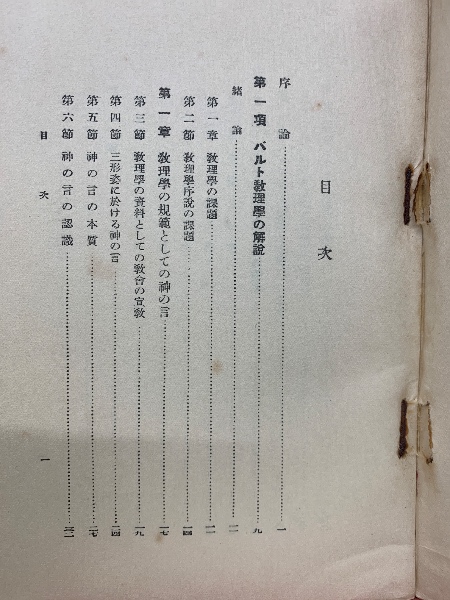 目次
序論……一
第一項 バルト敎理學の解說……九
緒論……一一
第一章 敎理學の課題……一二
第二節 敎理學序說の課題……一四
第一章 敎理學の規範としての神の言……一七
第三節 敎理學の資料としての敎會の宣敎……一九
第四節 三形姿に於ける神の言……二四
第五節 神の言の本質……二七
第六節 神の言の認識……三二
目次 一